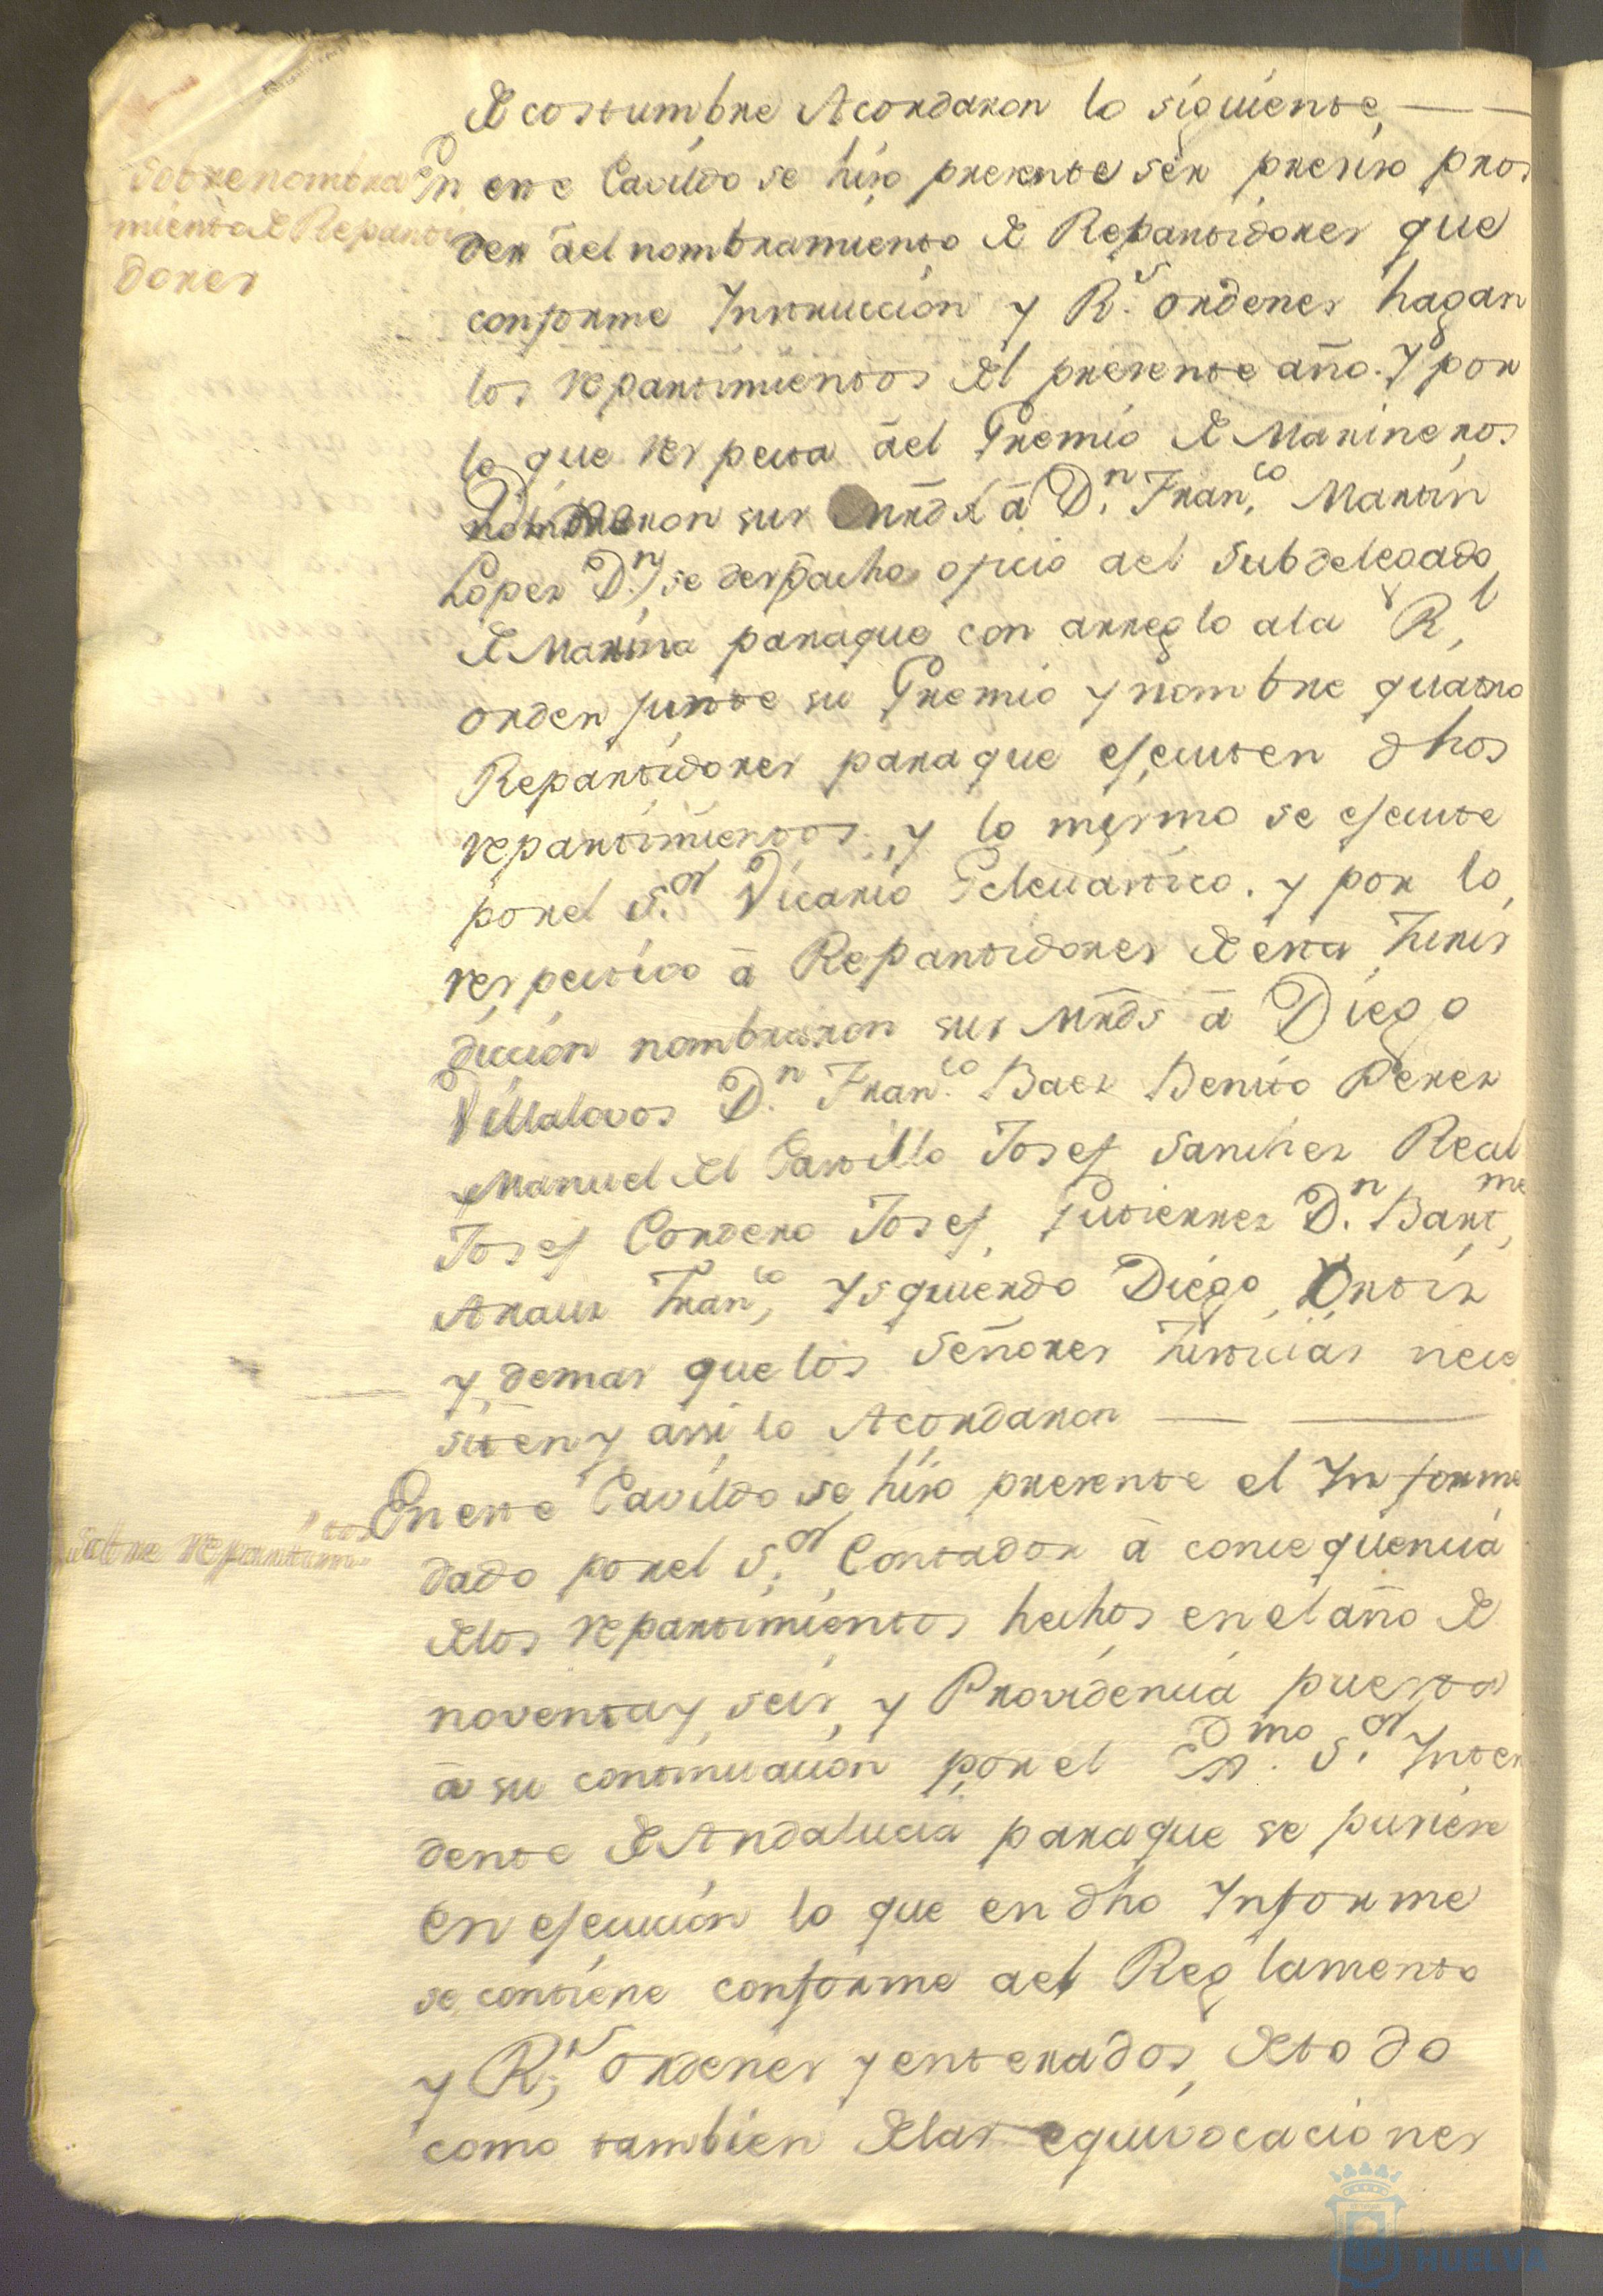 de costumbre Acordaron lo siguiente
Sobre nombra
miento de Reparti
dores
En este Cavildo se hiso presente ser presiso pros
der ael nombramiento de Repartidores que
conforme Instruccion y R.s ordenes hagan
los repartimientos del presente año. Y por
lo que respecta ael Gremio de Marineros
nombraron sus Mrds á D.n Fran.co Martin
Lopez D.n se despacho oficio ael Subdelegado
de Marina paraque con arreglo ala R.l
orden junte su Gremio y nombre quatro
Repartidores paraque ejecuten dhos
repartimientos, y lo mismo se ejecute
porel S.or Vicario Eclesiastico. y por lo
respectivo á Repartidores de esta Juris
diccion nombraron sus Mrds á Diego
Villalovos D.n Fran.co Baez Benito Perez
Manuel del Castillo Josef Sanchez Real
Josef Cordero Josef Gutierrez D.n Bart.me
Arauz Fran.co Ysquierdo Diego Ortiz
y demas que los Señores Justicias nece
siten y assi lo Acordaron
Sobre repartim.tos
En este Cavildo se hiso presente el Informe
dado porel S.or Contador á consequencia
delos repartimientos hechos en el año de
noventa y seis, y Providencia puesta
á su continuacion por el Ex.mo S.or Inten
dente de Andalucia paraque se pusiese
en ejecucion lo que en dho Informe
se contiene conforme ael Reglamento
y R.s ordenes y enterados de todo
como tambien delas equivocaciones
HUELVA